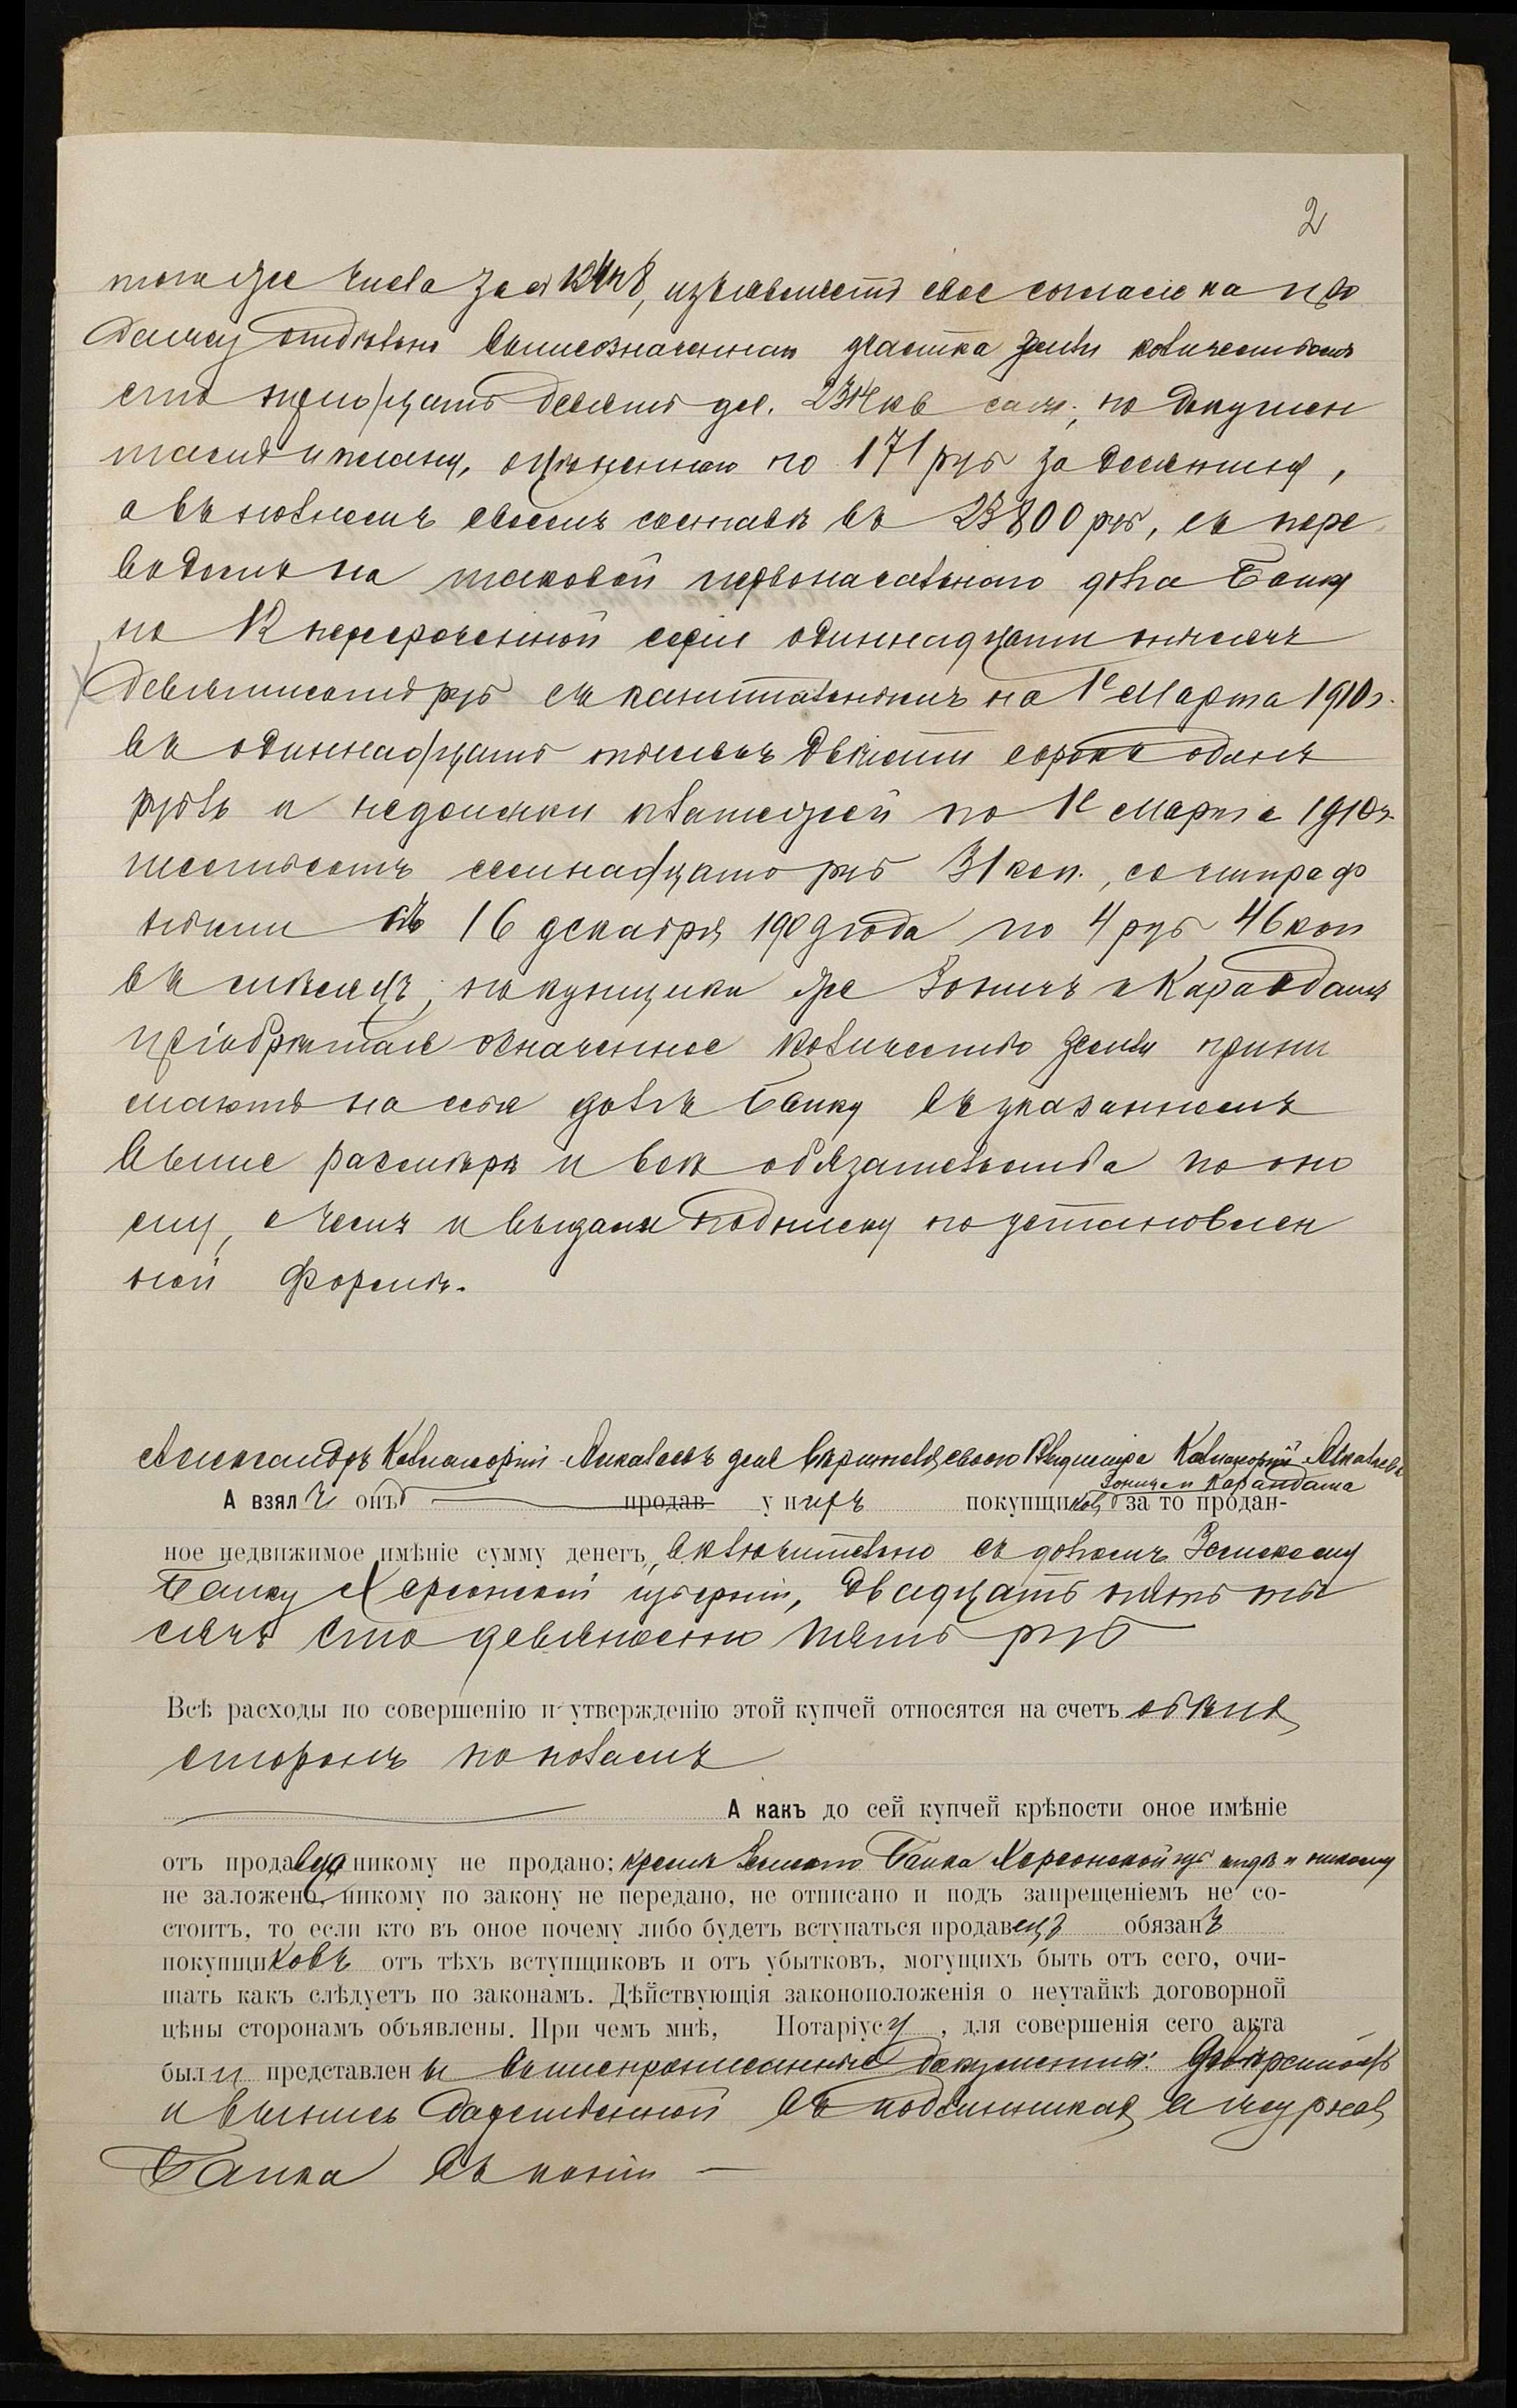 2
того же числа за № 12478, изъявляетъ свое согласіе на про
дажу отдѣльно вышеозначеннаго участка земли количествомъ
сто тридцать девять дес. 2314 кв саж., по докумен
тамъ и плану, оцѣненнаго по 171 руб за десятину,
а въ полномъ своемъ составѣ въ 23800 руб, съ пере
водомъ на таковой первоначальнаго долга Банку
по К нерочонной серіи одиннадцати тысячъ
девятисотъ руб съ капитальнымъ на 1е Марта 1910 г.
въ одиннадцать тысячъ двѣсти сорокъ одинъ
рубль и недоимки платежей по 1е Марта 1910 г.
шестьсотъ семнадцать руб 31 коп., со штраф
ными съ 16 декабря 1909 года по 4 руб 46 коп
въ мѣсяцъ, покупщики же Зоничъ и Карандашъ
пріобрѣтая означенное количество земли прини
маютъ на себя долгъ Банку въ указанномъ
выше размѣрѣ и всѣ обязательства по оно
му, о чемъ и выдали подписку по установлен
ной формѣ.
Александръ для вѣрителя своего Владиміра
Зонича и Карандаша
А взялъ онъ продав у нихъ покупщиковъ за то продан-
ное недвижимое имѣніе сумму денегъ, включительно съ долгомъ Земскому
Банку Херсонской губерніи, двадцать пять ты
сячъ сто девяносто пять руб
Всѣ расходы по совершенію и утвержденію этой купчей относятся на счетъ обѣихъ
сторонъ пополамъ
А какъ до сей купчей крѣпости оное имѣніе
отъ продавца никому не продано; кромѣ Земскаго Банка Херсонской губ нигдѣ и никому
не заложено, никому по закону не передано, не отписано и подъ запрещеніемъ не со-
стоитъ, то если кто въ оное почему либо будетъ вступаться продавецъ обязанъ
покупщиковъ отъ тѣхъ вступщиковъ и отъ убытковъ, могущихъ быть отъ сего, очи-
щать какъ слѣдуетъ по законамъ. Дѣйствующія законоположенія о неутайкѣ договорной
цѣны сторонамъ объявлены. При чемъ мнѣ, Нотаріусу, для совершенія сего акта
были представлены вышепрописанные документы: довѣренность
и выпись дарственной въ подлинникахъ а журналъ
Банка въ копіи —